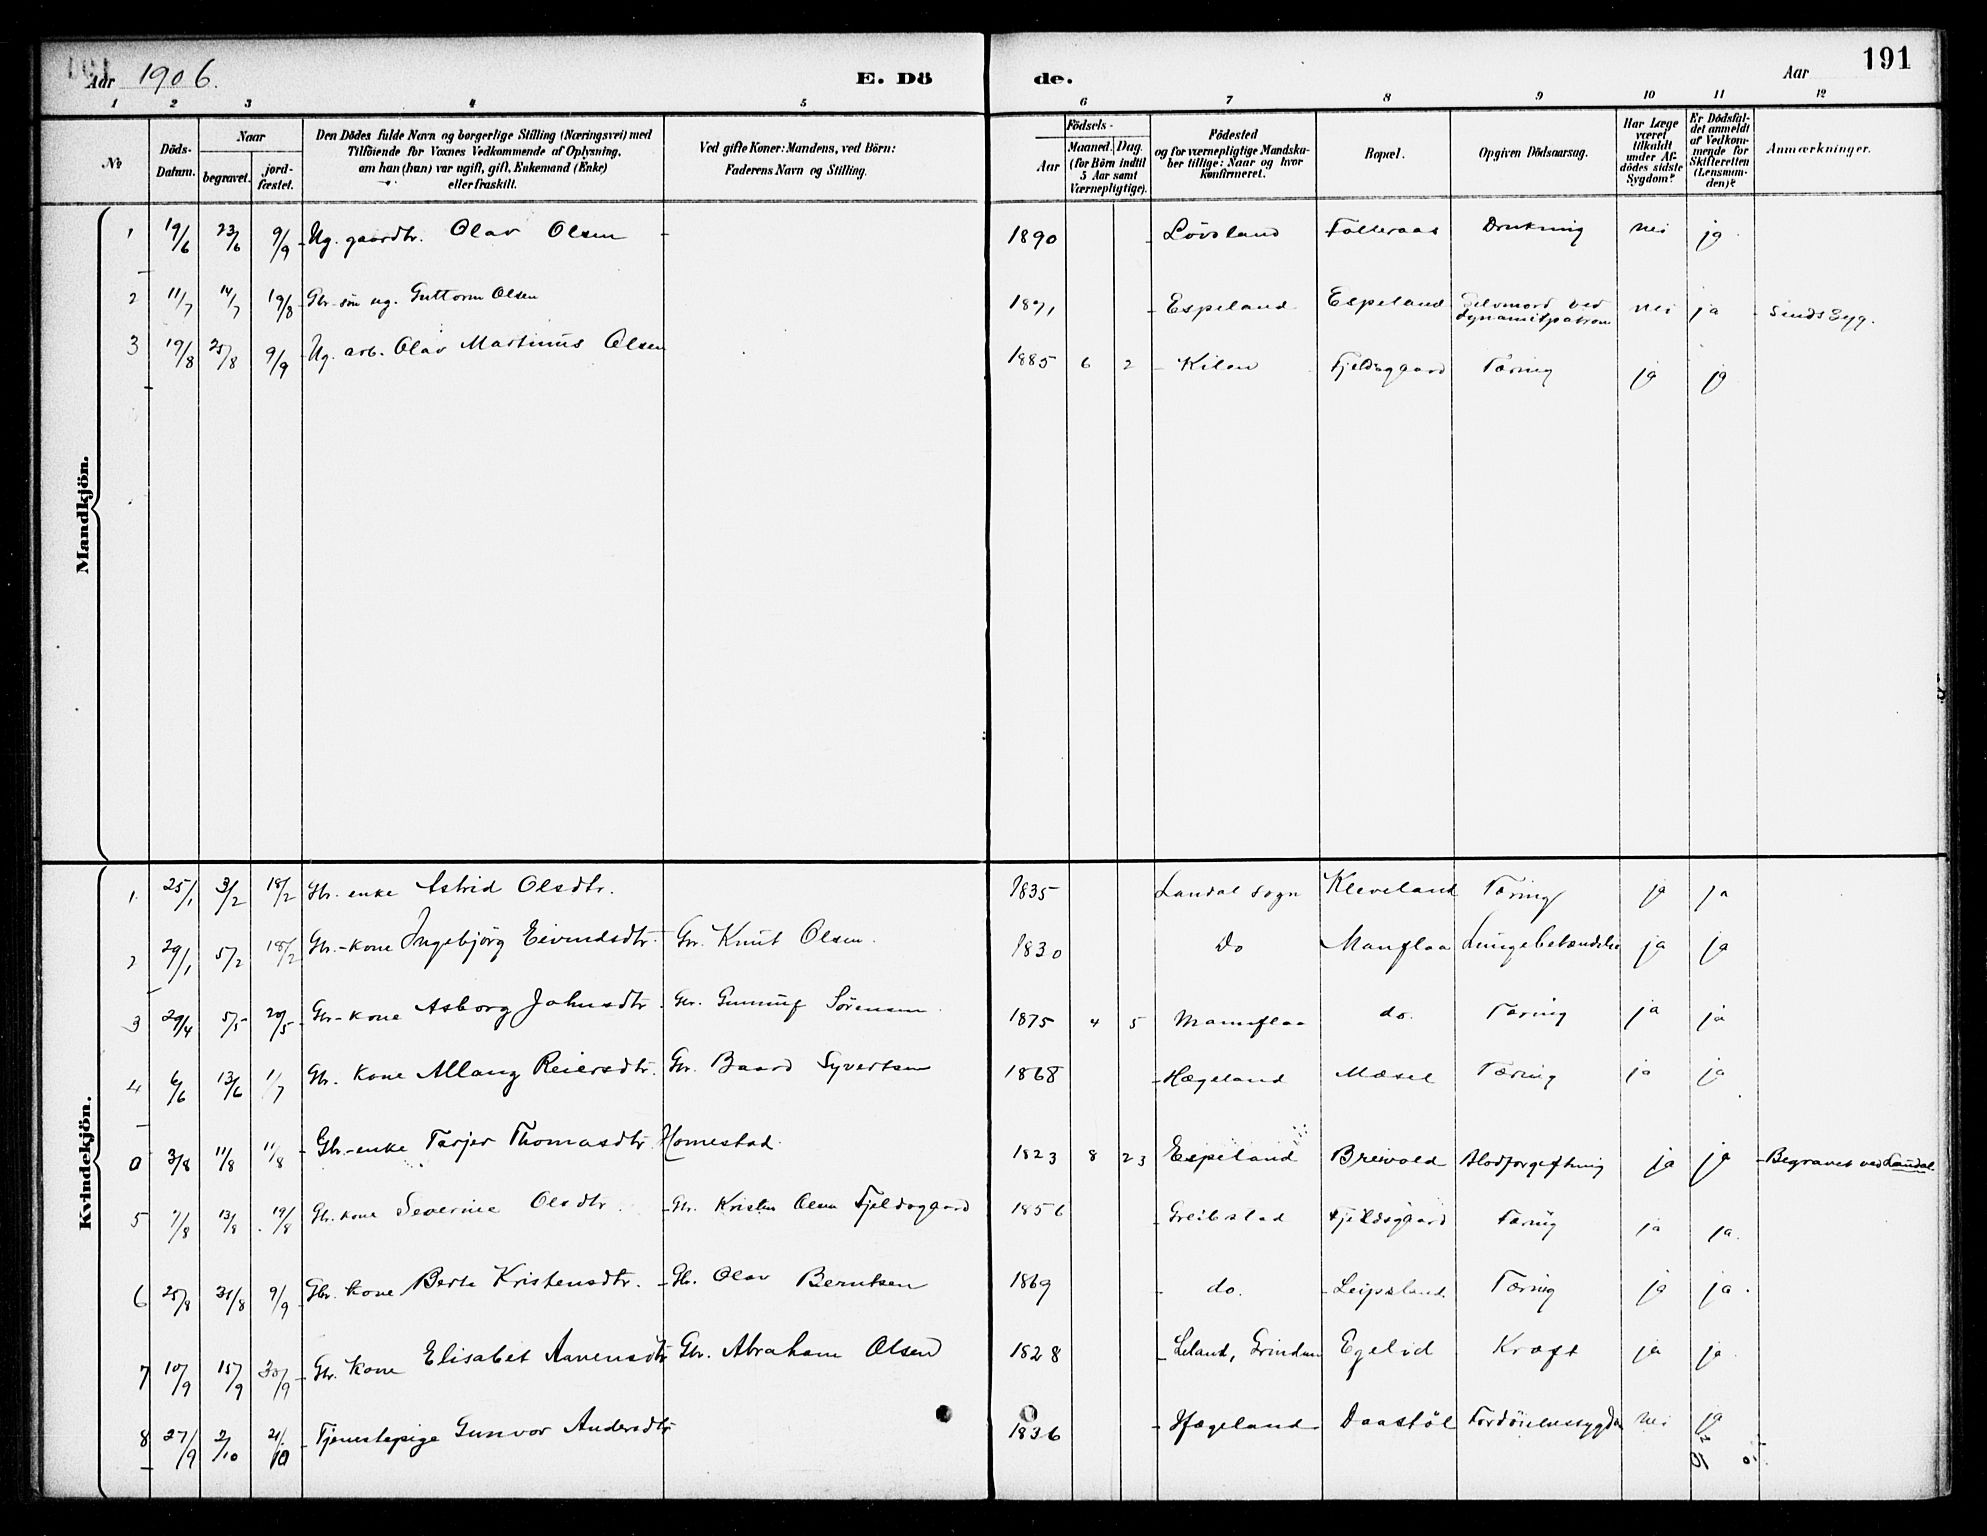 Aar 1906. E. Dö de. Aar 191
1 2 3 4 5 6 7 8 9 10 11 12
№
Döds-Datum.
Naar
begravet.
jord-fæstet.
Den Dödes fulde Navn og borgerlige Stilling (Næringsvei) med
Tilföiende for Voxnes Vedkommende af Oplysning,
om han (hun) var ugift, gift, Enkemand (Enke)
eller fraskilt.
Ved gifte Koner: Mandens, ved Börn:
Faderens Navn og Stilling.
Födsels-
Aar
Maaned. Dag.
(for Börn indtil
5 Aar samt
Værnepligtige).
Födested
og for værnepligtige Mandska-
ber tillige: Naar og hvor
konfirmeret.
Bopæl.
Opgiven Dödsaarsag.
Har Læge
været
tilkaldt
under Af-
dödes sidste
Sygdom?
Er Dödsfal-
det anmeldt
af Vedkom-
mende for
Skifteretten
(Lensman-
den)?
Anmærkninger.
Mandkjön.
1 19/6 23/6 9/9 Ug. gaardbr. Olav Olsen 1890 Lövsland Drukning nei ja
2 11/7 14/7 19/8 Gbr. sön ug. Guttorm Olsen 1871 Espeland Espeland Selvmord ved dynamitpatron nei ja Sindssyg.
3 19/8 25/8 9/9 Ug. arb. Olav Martinius Olsen 1885 6 2 Kilen Fjeldsgaard Tæring ja ja
Kvindekjön.
1. 25/1 3/2 18/2 Gbr. enke Astrid Olsdtr. 1835 Laudal sogn Kleveland Tæring ja ja
2 29/1 5/2 18/2 Gbr.-kone Ingebjörg Eivindsdtr. Gbr. Knut Olsen. 1830 Do Manflaa Lungebetændelse ja ja
3 29/4 5/5 20/5 Gbr-kone Asborg Johnsdtr. Gbr. Gunnuf Sörensen 1875 4 5 Mannflaa do. Tæring ja ja
4 6/6 13/6 1/7 Gbr. kone Allaug Reiersdtr. Gbr. Baard Syvertsen 1868 Hægeland Mæsel Tæring ja ja
0 3/8 11/8 11/8 Gbr.-enke Tarjer Thomasdtr Homestad 1823 8 23 Espeland Breivold Blodforgiftning ja ja Begravet ved Laudal
5 7/8 13/8 19/8 Gbr. kone Severine Olsdtr. Gbr. Kristen Olsen Fjeldsgaard 1856 Greibstad Fjeldsgaard Tæring ja ja.
6 25/8 31/8 9/9 Gbr. kone Berte Kristensdtr. Gb. Olav Berntsen 1869 do. Leipsland Tæring ja ja.
7 10/9 15/9 30/9 Gbr. kone Elisabet Aanensdtr Gbr. Abraham Olsen 1828 Leland, Grindum Egelid Kræft ja ja
8 27/9 2/10 21/10 Tjenestepige Gunvor Andersdtr 1836 Hægeland Daastöl nei ja